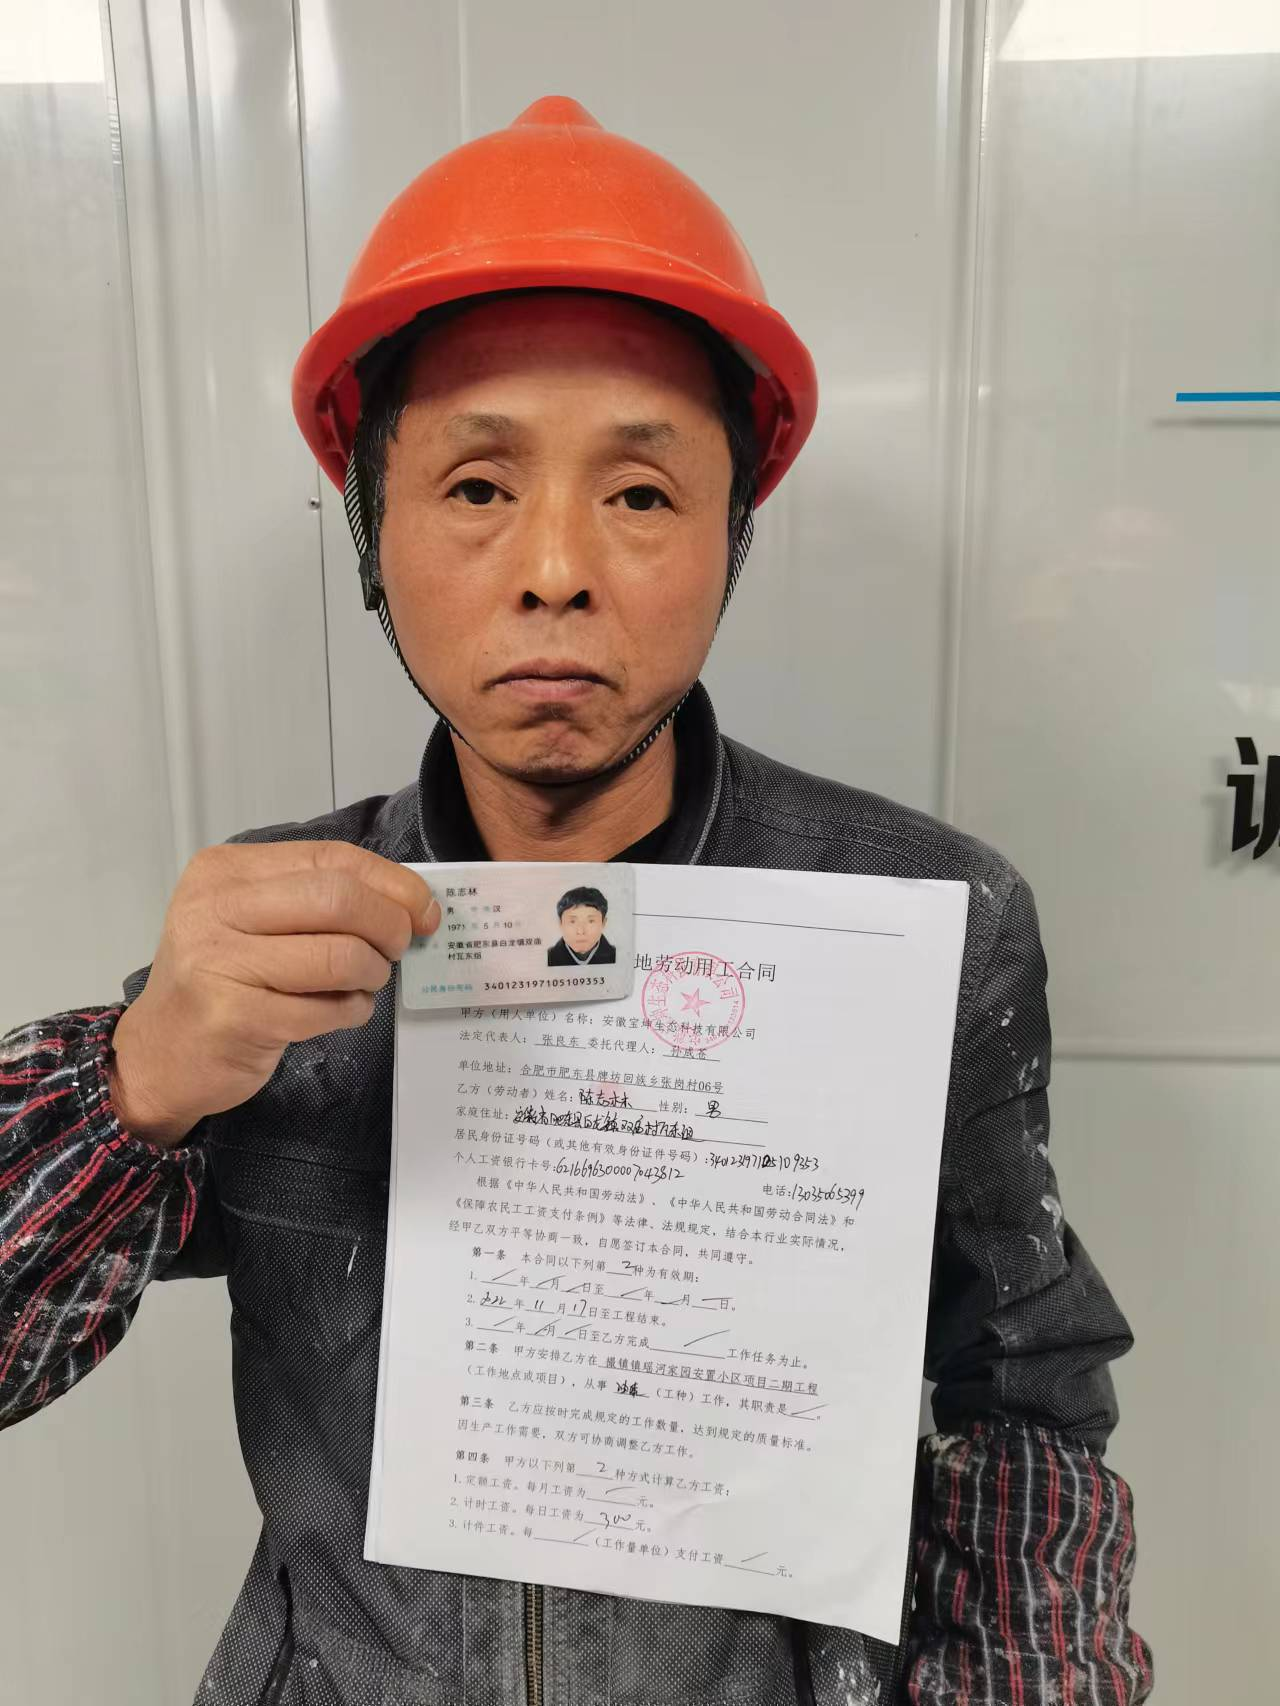 陈志林
男 汉
1971 年 5 月 10
安徽省肥东县白龙镇双庙
村瓦东组
公民身份号码 340123197105109353
地劳动用工合同
甲方（用人单位）名称：安徽宝坤生态科技有限公司
法定代表人：张良东 委托代理人：孙成苍
单位地址：合肥市肥东县牌坊回族乡张岗村06号
乙方（劳动者）姓名：陈志林 性别：男
家庭住址：安徽省肥东县白龙镇双庙村瓦东组
居民身份证号码（或其他有效身份证件号码）：340123197105109353
个人工资银行卡号：6216696300007043812
电话：13035065399
根据《中华人民共和国劳动法》、《中华人民共和国劳动合同法》和
《保障农民工工资支付条例》等法律、法规规定，结合本行业实际情况，
经甲乙双方平等协商一致，自愿签订本合同，共同遵守。
第一条 本合同以下列第 2 种为有效期：
1. / 年 / 月 / 日至 / 年 / 月 / 日。
2. 2022 年 11 月 17 日至工程结束。
3. / 年 / 月 / 日至乙方完成 / 工作任务为止。
第二条 甲方安排乙方在 撮镇镇瑶河家园安置小区项目二期工程
（工作地点或项目），从事 （工种）工作，其职责是 / 。
第三条 乙方应按时完成规定的工作数量，达到规定的质量标准。
因生产工作需要，双方可协商调整乙方工作。
第四条 甲方以下列第 2 种方式计算乙方工资：
1. 定额工资。每月工资为 / 元。
2. 计时工资。每日工资为 300 元。
3. 计件工资。每 / （工作量单位）支付工资 / 元。